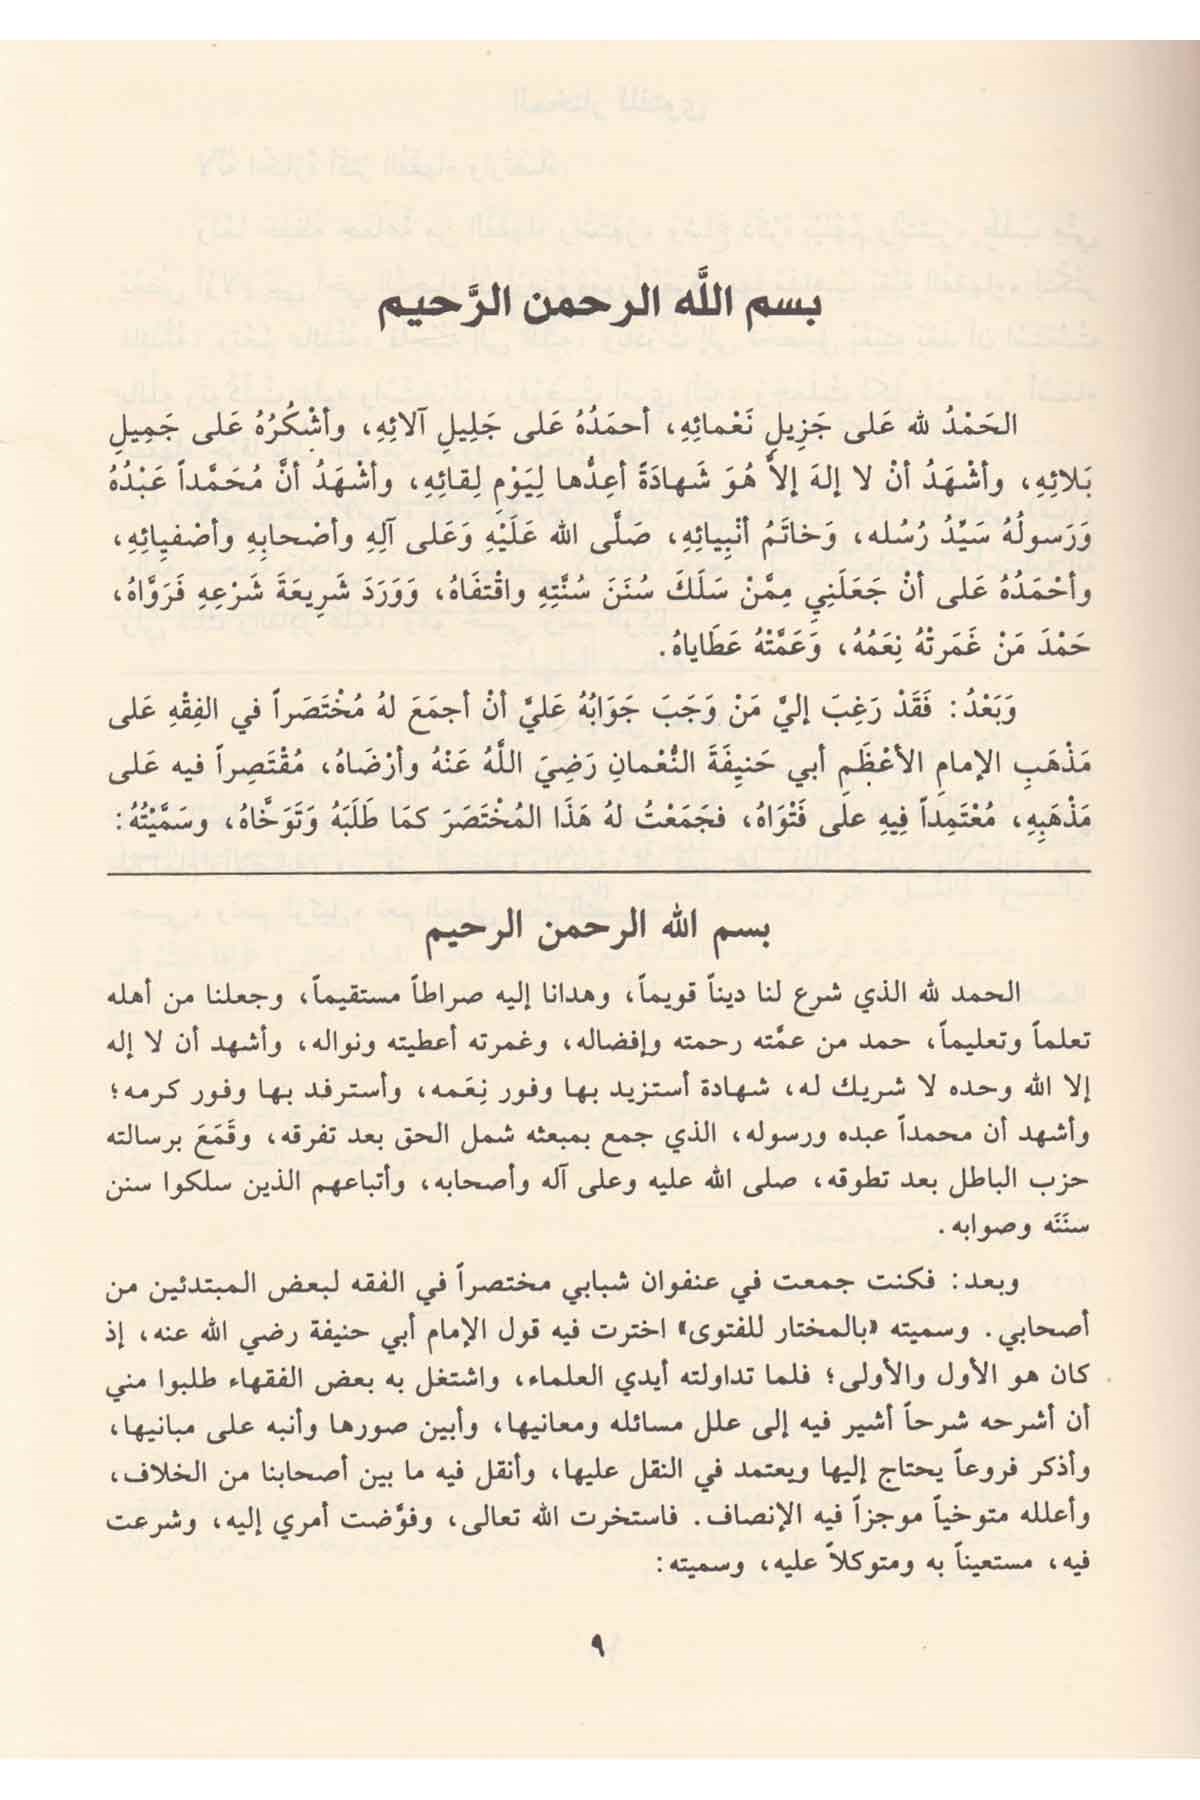 بسم اللَّه الرحمن الرَّحيم
الحَمْدُ لله عَلى جَزِيلِ نَعْمائِهِ، أحمَدُهُ عَلى جَلِيلِ آلائِهِ، وأشْكُرُهُ عَلى جَمِيلِ
بَلائِهِ، وأشْهَدُ أنْ لا إلهَ إلاَّ هُوَ شَهادَةً أعِدُّها لِيَوْمِ لِقائِهِ، وأشْهَدُ أنَّ مُحَمَّداً عَبْدُهُ
وَرَسولُهُ سَيِّدُ رُسُله، وَخاتَمُ أنْبِيائِهِ، صَلَّى الله عَلَيْهِ وَعَلى آلِهِ وأصْحابِهِ وأصْفيِائِهِ،
وأحْمَدُهُ عَلى أنْ جَعَلَنِي مِمَّنْ سَلَكَ سُنَنَ سُنَّتِهِ واقْتفَاهُ، وَوَرَدَ شَرِيعَةَ شَرْعِهِ فَرَوَّاهُ،
حَمْدَ مَنْ غَمَرتْهُ نِعَمُهُ، وَعَمَّتْهُ عَطَاياهُ.
وَبَعْدُ: فَقَدْ رَغِبَ إليَّ مَنْ وَجَبَ جَوَابُهُ عَليَّ أنْ أجمَعَ لهُ مُخْتَصَراً في الفِقْهِ عَلى
مَذْهَبِ الإمامِ الأعْظَمِ أبي حَنيِفَةَ النُّعْمانِ رَضِيَ اللَّهُ عَنْهُ وأرْضَاهُ، مُقْتَصِراً فيه عَلى
مَذْهَبِهِ، مُعْتَمِداً فِيهِ على فَتْوَاهُ، فجَمَعْتُ لهُ هَذَا المُخْتَصَرَ كمَا طَلَبَهُ وَتَوَخَّاهُ، وسَمَّيْتُهُ:
بسم الله الرحمن الرحيم
الحمد لله الذي شرع لنا ديناً قويماً، وهدانا إليه صراطاً مستقيماً، وجعلنا من أهله
تعلماً وتعليماً، حمد من عمَّته رحمته وإفضاله، وغمرته أعطيته ونواله، وأشهد أن لا إله
إلا الله وحده لا شريك له، شهادة أستزيد بها وفور نِعَمه، وأسترفد بها وفور كرمه؛
وأشهد أن محمداً عبده ورسوله، الذي جمع بمبعثه شمل الحق بعد تفرقه، وقَمَعَ برسالته
حزب الباطل بعد تطوقه، صلى الله عليه وعلى آله وأصحابه، وأتباعهم الذين سلكوا سنن
سنَنَه وصوابه.
وبعد: فكنت جمعت في عنفوان شبابي مختصراً في الفقه لبعض المبتدئين من
أصحابي. وسميته «بالمختار للفتوى» اخترت فيه قول الإمام أبي حنيفة رضي الله عنه، إذ
كان هو الأول والأولى؛ فلما تداولته أيدي العلماء، واشتغل به بعض الفقهاء طلبوا مني
أن أشرحه شرحاً أشير فيه إلى علل مسائله ومعانيها، وأبين صورها وأنبه على مبانيها،
وأذكر فروعاً يحتاج إليها ويعتمد في النقل عليها، وأنقل فيه ما بين أصحابنا من الخلاف،
وأعلله متوخياً موجزاً فيه الإنصاف. فاستخرت الله تعالى، وفوَّضت أمري إليه، وشرعت
فيه، مستعيناً به ومتوكلاً عليه، وسميته:
٩